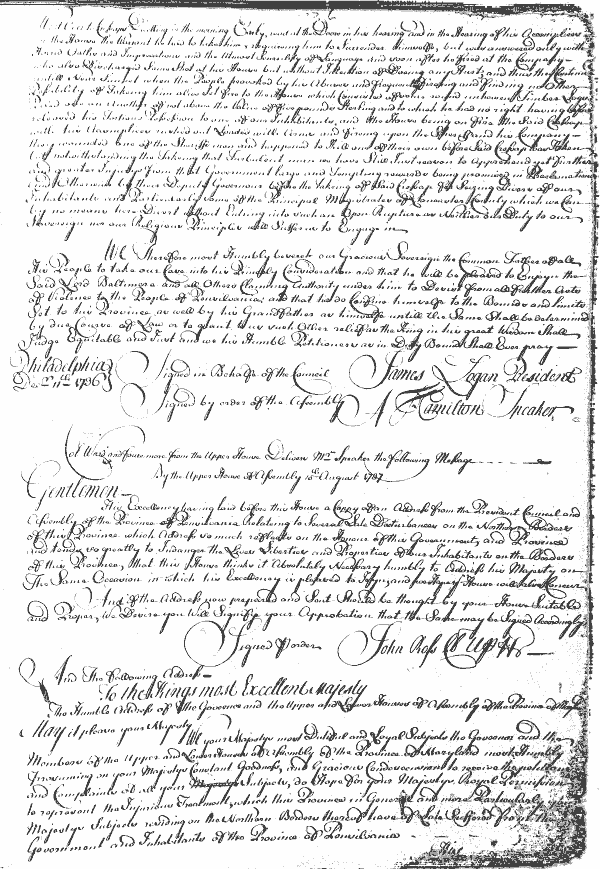 in the morning Early, went to the Door in his hearing and in the Hearing of his Accomplices
in the House the Warrant he had to take him, requiring him to Surrender himselfe, but was answered only with
and the utmost Scurrility of Language and soon after he fired at the Company
who also Discharged Some Shot at the House but without Intention of Doing any Hurt; and thus they Continued
untill near Sunset when the People provoked by his Abuse and and finding no other
Possibility of Taking him alive Set fire to the House which
not above the Value of five pounds Sterling and to which he had no right having before
to any of our Inhabitants, and the House being on fire the Said Cresap
with his Accomplices rushed out Loaded with Arms and firing upon the Sheriff and his Company
they wounded one of the Sheriffs men and happened to Kill one of their own before Said Cresap was Taken
But notwithstanding the Taking that Turbulent man we have Still Just reason to Apprehend yet further
and greater Injurys from that Government large and Tempting rewards being promised in Proclamations
by their Deputy Governour before the Taking of Said Cresap for Seizing Divers of our
Inhabitants and Particularly Some of the Principal Magistrates of Lancaster County which we Can
by no means here Divert without Entring into Such an Open Rupture as Neither our Duty to our
Sovereign nor our Religious Principles will Suffer us to Engage in
We Therefore most Humbly beseech our Gracious Sovereign the Common Father of all
His People to take our Case into his Princely Consideration and that he will be pleased to Enjoyn the
Said Lord Baltimore and all Others Claiming Authority under him to Desist from all further Acts
of Violence to the People of Pensilvania; and that he do Confine himselfe to the Bounds and Limits
Set to his Province as well by his Grandfather as himselfe untill the Same Shall be determined
by due Course of Law or to grant us Such Other relief as the King in his great Wisdom Shall
Judge Equitable and Just and we his Humble Petitioners as in Duty Bound Shall Ever pray
Philadelphia
Decr 11th 1736
Signed in Behalfe of the Council James Logan President
Signed by order of the Assembly A Hamilton Speaker
and four more from the Upper House Deliver Mr Speaker the following Message
By the Upper House of Assembly 15th August 1737
Gentlemen
His Excellency having laid before this House a Coppy of an Address from the President Council and
Assembly of the Province of Pensilvania Relating to Several Late Disturbances on the Northern Borders
of this Province which Address so much reflects on the Honour of this Government, and Province
and tends so greatly to Indanger the Lives Liberties and Properties of our Inhabitants on the Borders
of this Province, that this House thinks it Absolutely Necessary humbly to Address his Majesty on
The Same Occasion in which his Excellency is pleased to Joyn, and we hope your House will also Concur
And if the Address you prepared and Sent Should be thought by your House Suitable
and Proper, we Desire you will Signify your Approbation that the Same may be Signed Accordingly
Signed P order John Ross Cl Up Hs
And The following Address
To the Kings most Excellent Majesty
The Humble Address of the Governor and the Upper and Lower Houses of Assembly of the Province of
May it please your Majesty
We your Majestys most Dutiful and Loyal Subjects the Governor and the
Members of the Upper and Lower Houses of Assembly of the Province of Maryland most Humbly
Presuming on your Majestys Constant Goodness, and Gracious Condescension to receive the petitions
and Complaints of all your Subjects, do Hope for your Majestys Royal Permission
to represent the Injurious Treatment, which this Province in General and more Particularly
Majestys Subjects residing on the Northern Borders thereof have of Late Suffered from the
Government and Inhabitants of the Province of Pensilvania